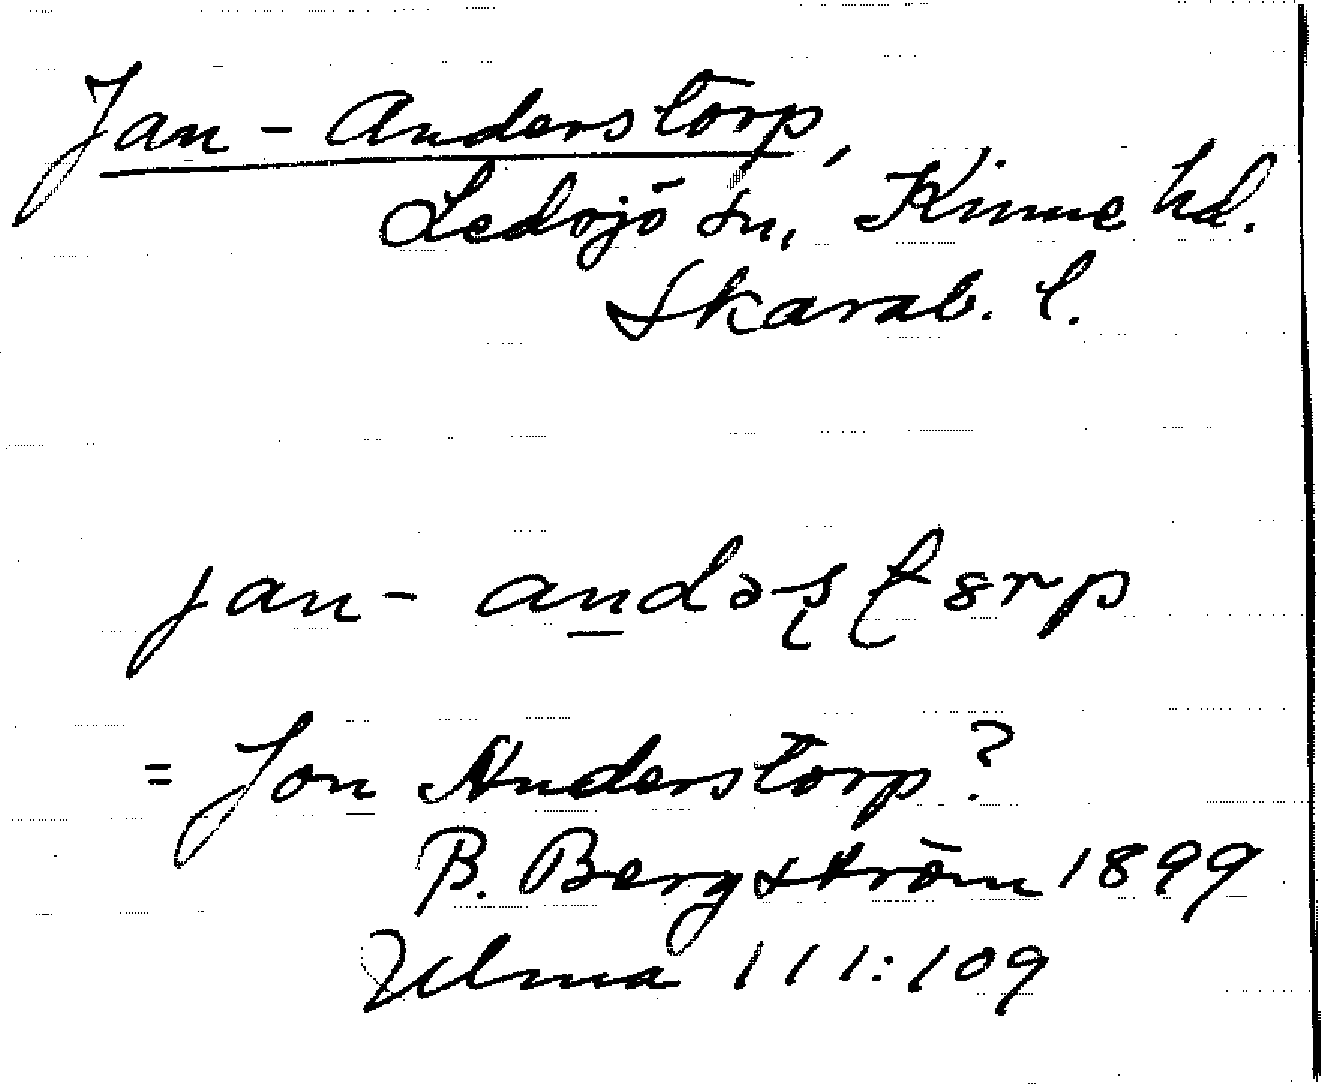 Jan-Anderstorp,
Ledsjö sn, Kinne hd.
Skarab. l.
jan-andəʂʈsrp
= Jon Anderstorp?
B. Bergström 1899
Ulma 111:109